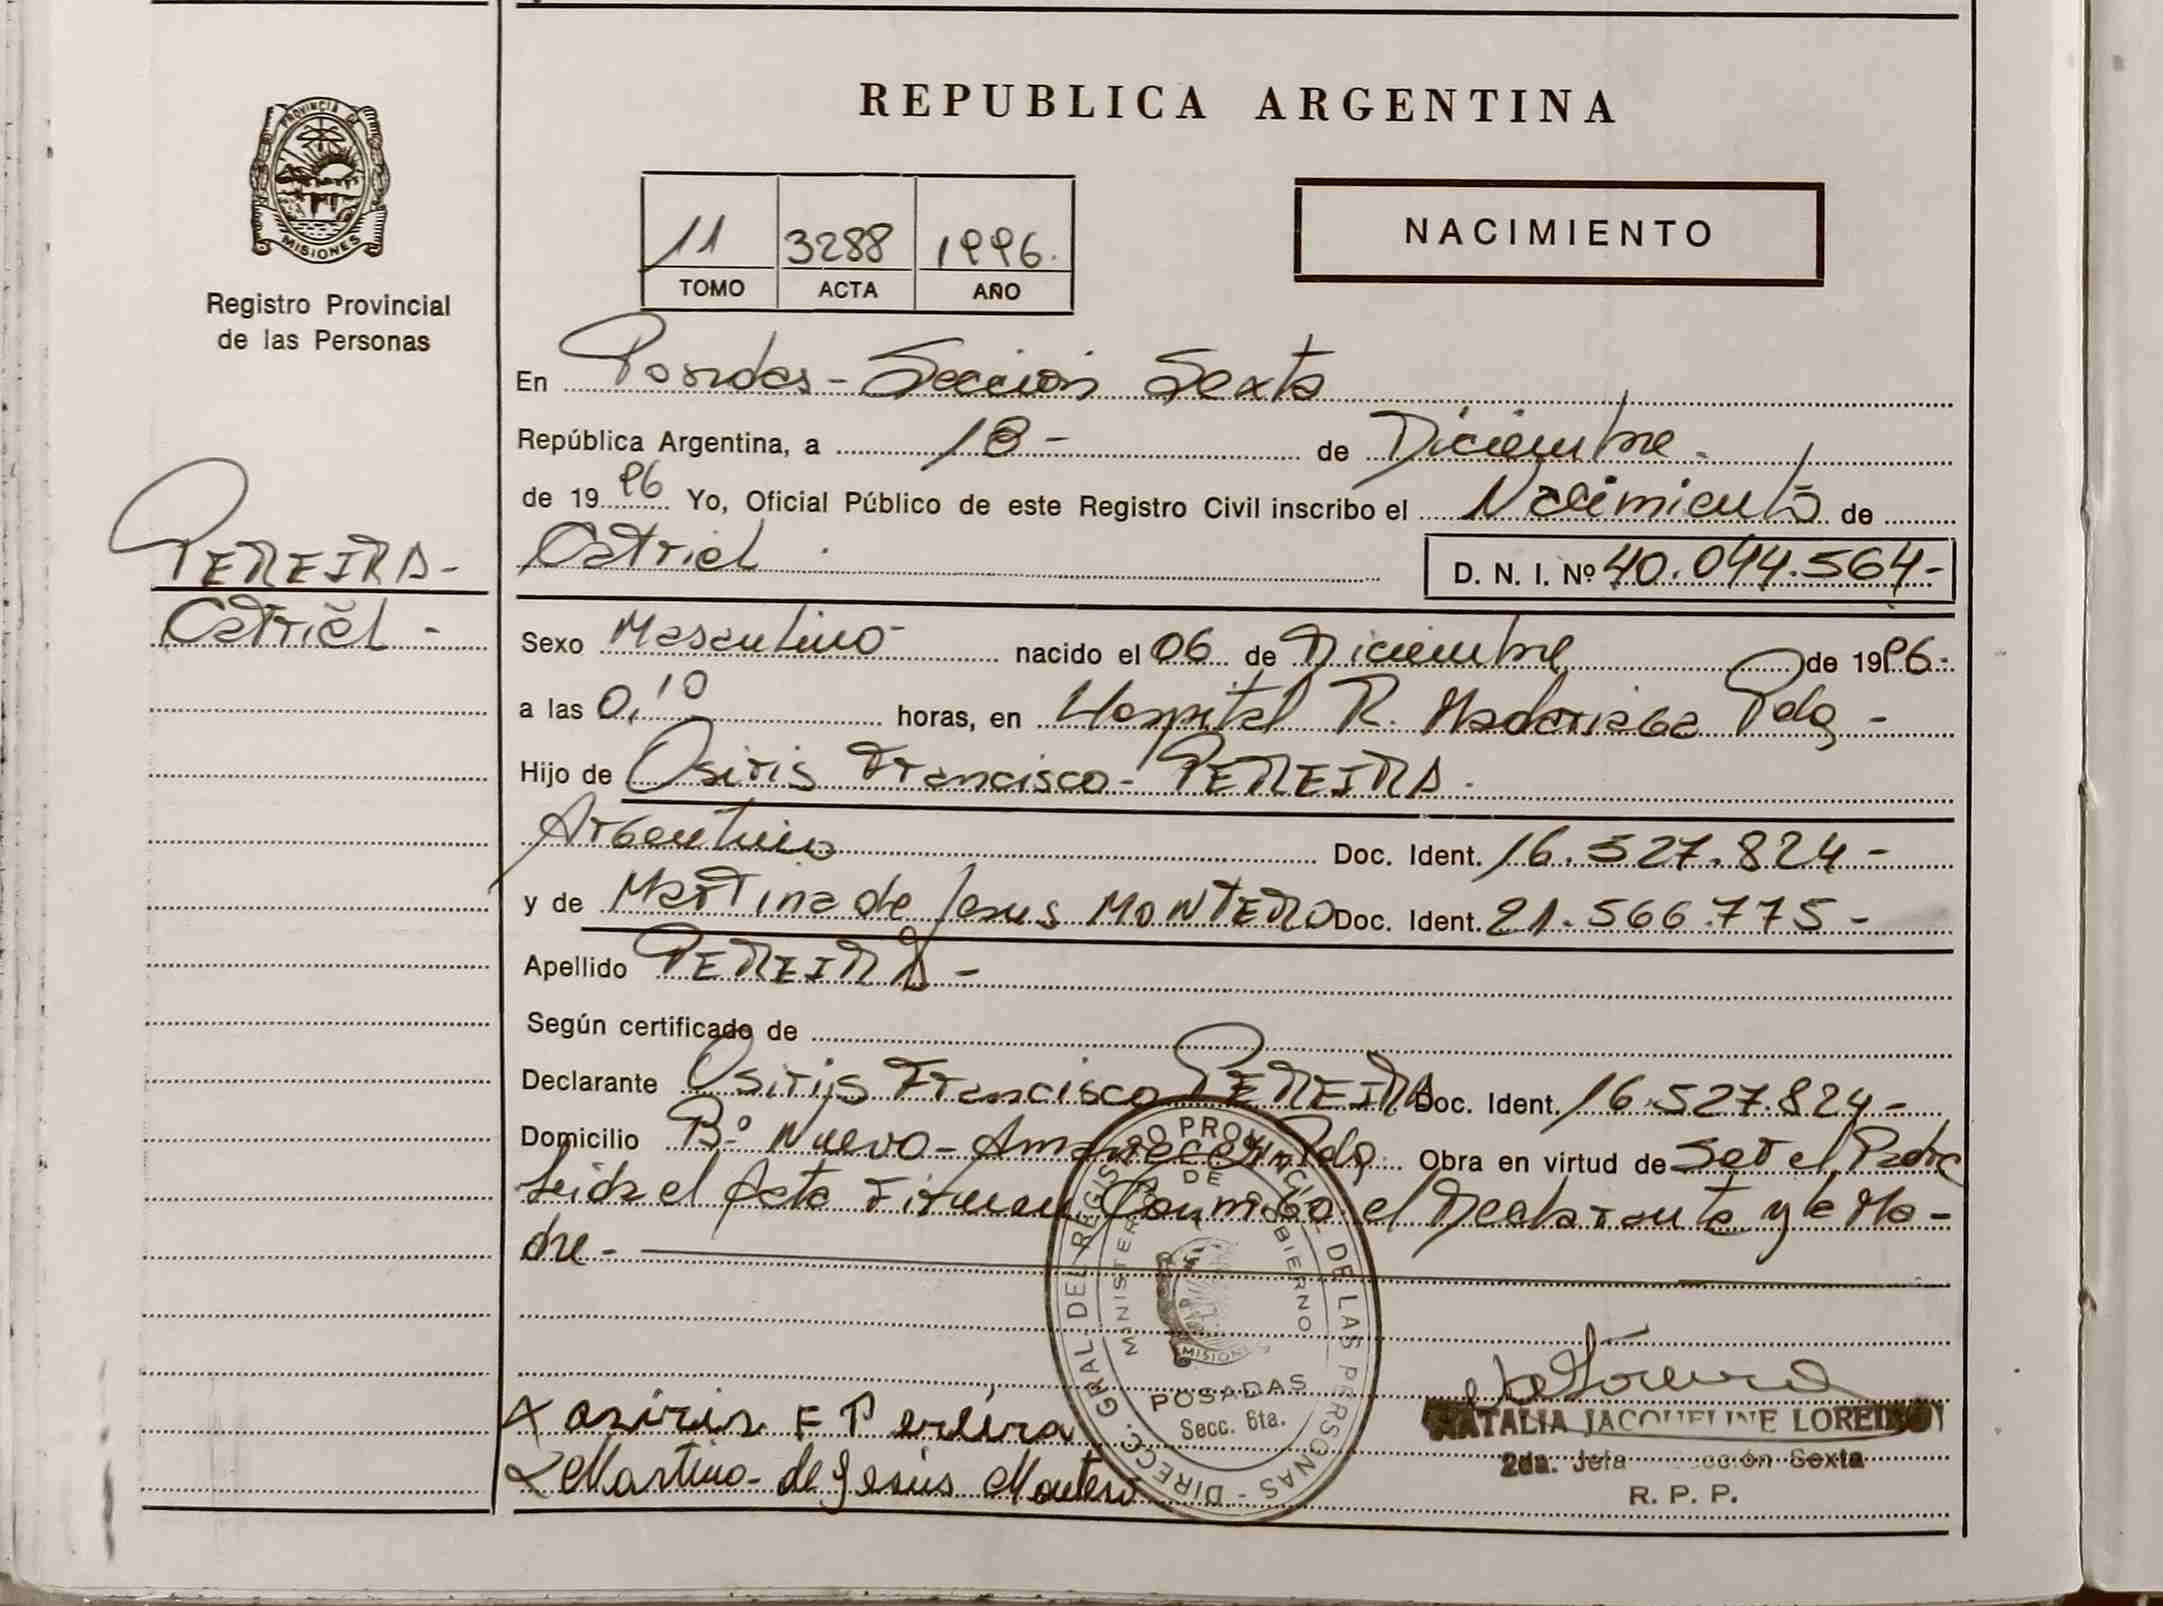 REPUBLICA ARGENTINA
PROVINCIA DE
MISIONES
Registro Provincial
de las Personas
11 3288 1996.
TOMO ACTA AÑO
NACIMIENTO
En Posadas - Sección Sexta
República Argentina, a 18 - de Diciembre.
de 1996 Yo, Oficial Público de este Registro Civil inscribo el Nacimiento de
Catriel. D. N. I. Nº 40.044.564-
PEREIRA-
Catriel -
Sexo Masculino - nacido el 06 de Diciembre de 1996.-
a las 0,10 horas, en Hospital R. Madariaga Pdas -
Hijo de Osiris Francisco - PEREIRA.
Argentino Doc. Ident. 16.527.824 -
y de Martina de Jesus MONTERO Doc. Ident. 21.566.775 -
Apellido PEREIRA -
Según certificado de
Declarante Osiris Francisco PEREIRA Doc. Ident. 16.527.824 -
Domicilio Bº Nuevo - Amanecer Pdas. Obra en virtud de Ser el Padre
Leida el Acta Firman Conmigo el Declarante y la Ma-
dre -
DIRECC. GRAL. DEL REGISTRO PROVINCIAL DE LAS PERSONAS -
MINISTERIO DE GOBIERNO
MISIONES
POSADAS
Secc. 6ta.
x osiris F Pereira
x Martina de Jesús Montero
NATALIA JACQUELINE LOREIRO
2da. Jefa Sección Sexta
R. P. P.